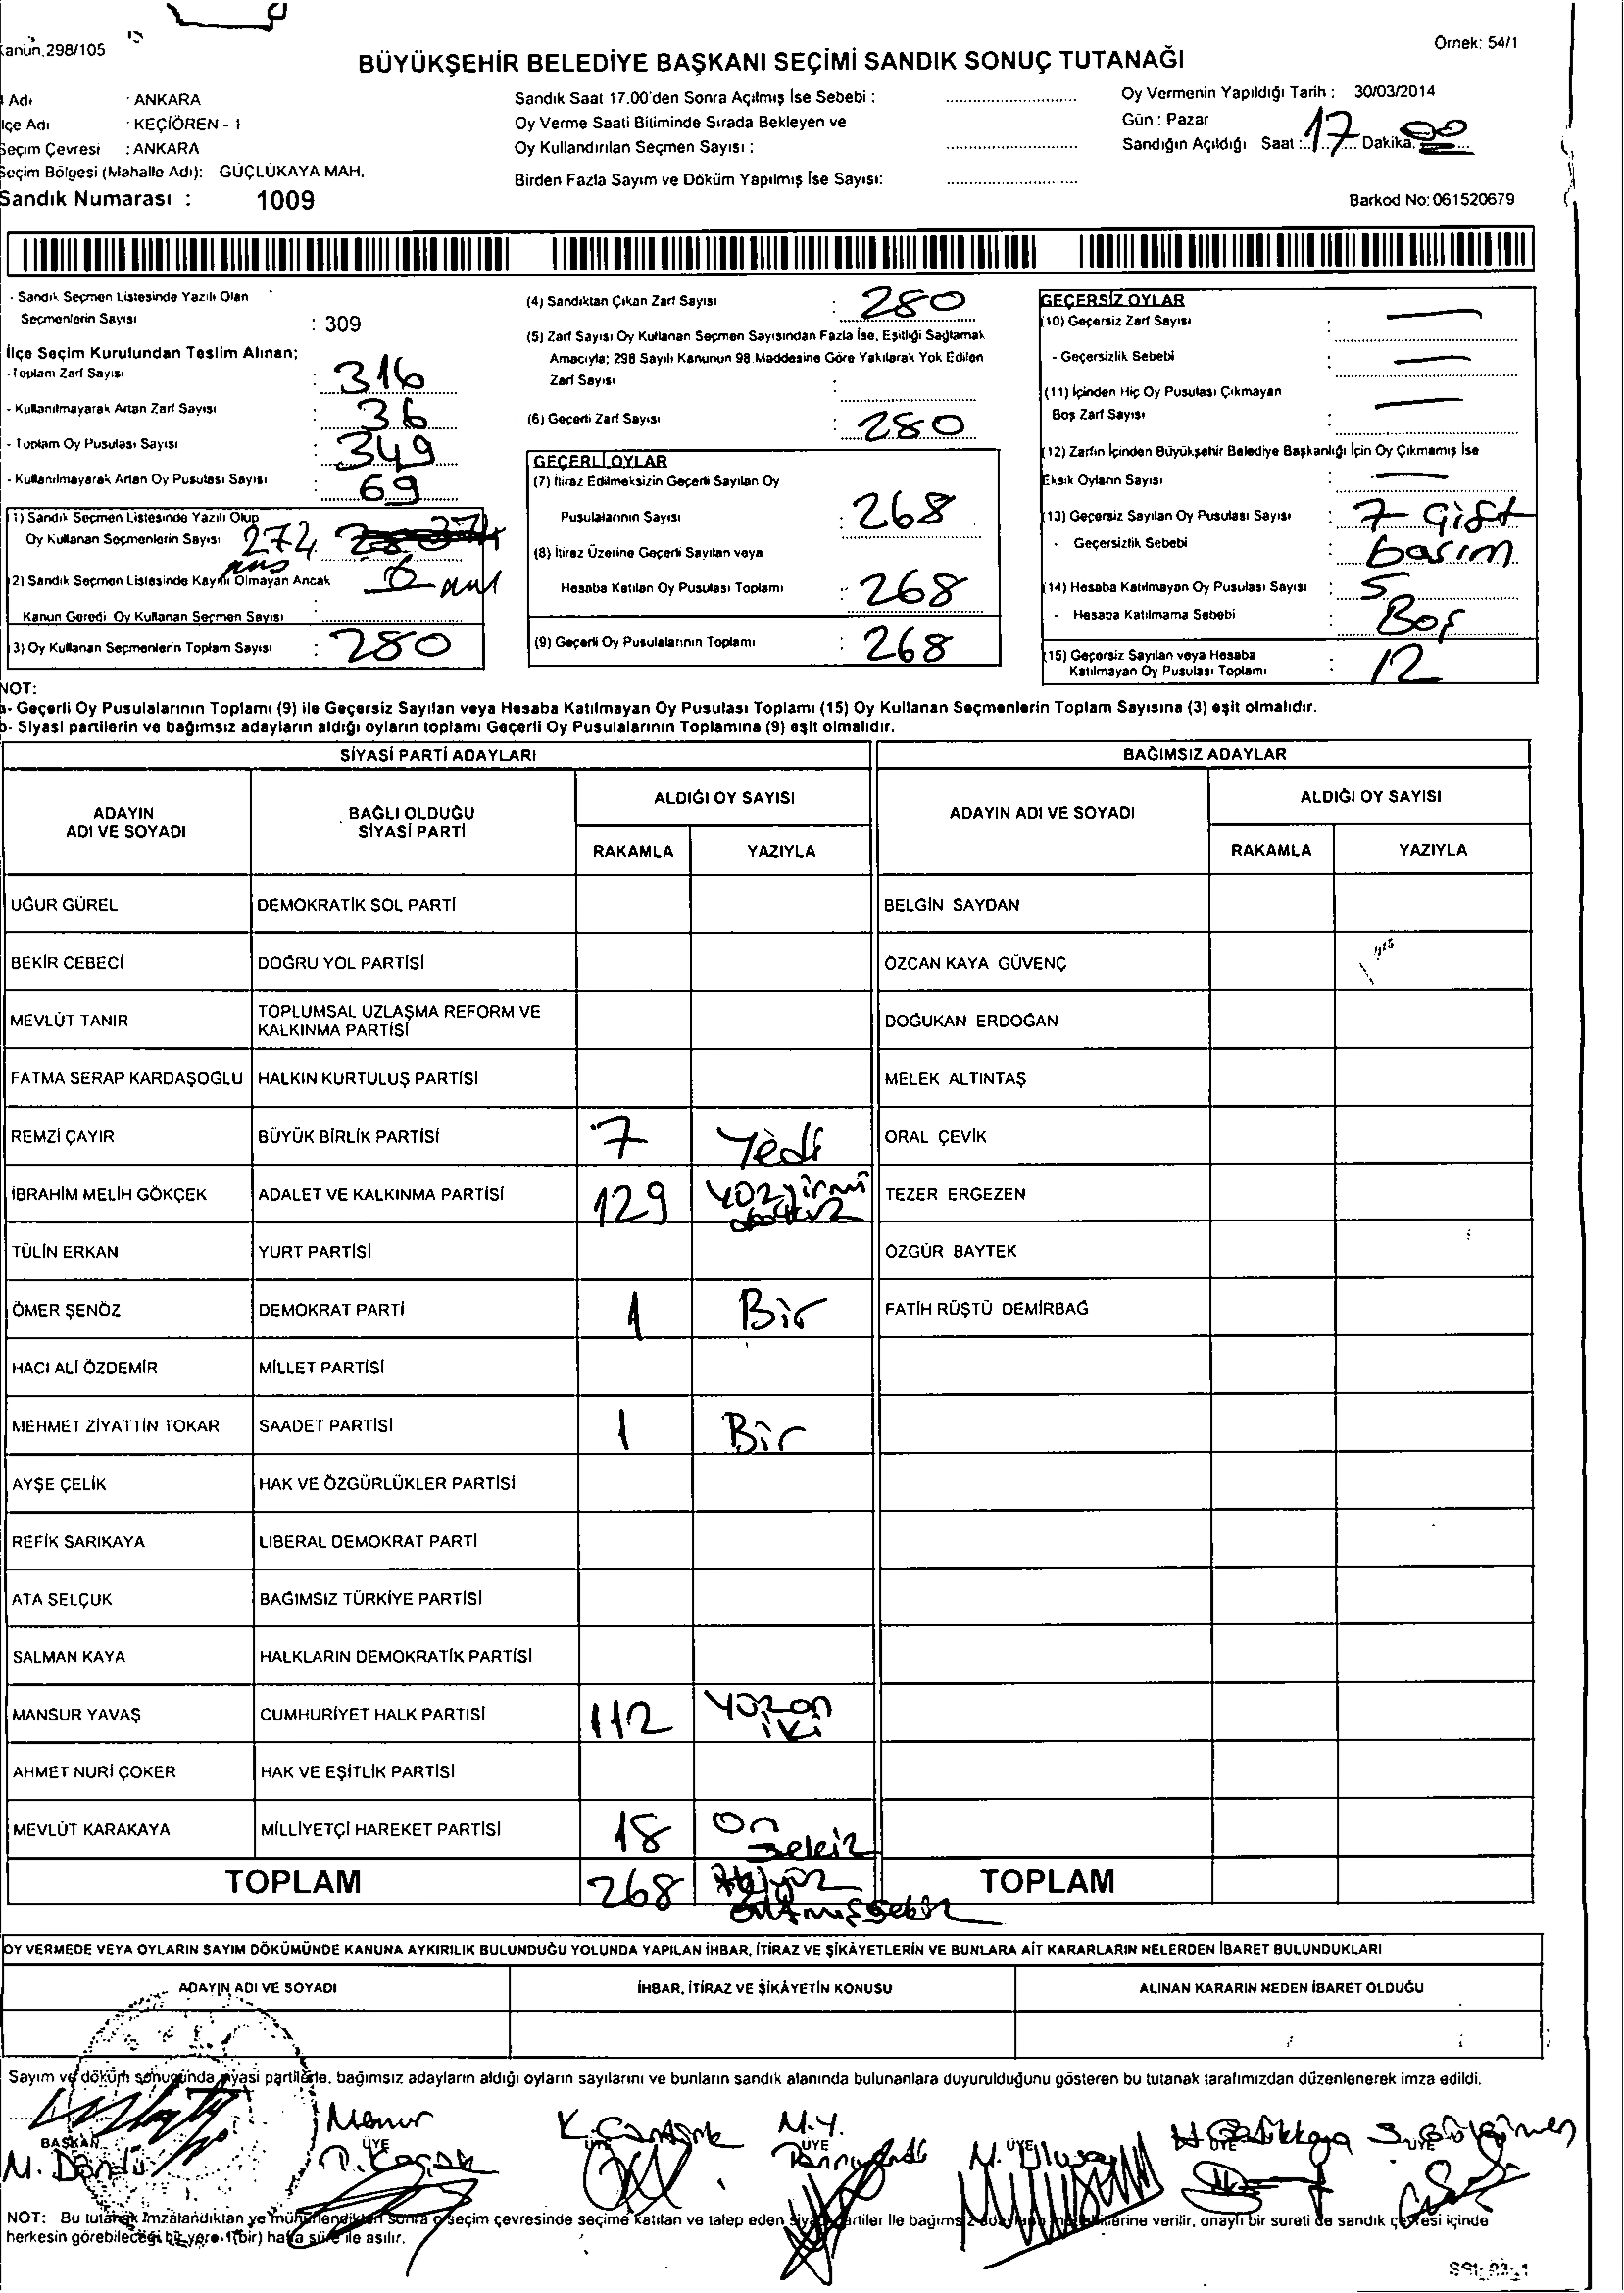 Kanun 298/105
Örnek: 54/1
BÜYÜKŞEHİR BELEDİYE BAŞKANI SEÇİMİ SANDIK SONUÇ TUTANAĞI
Adı : ANKARA
lçe Adı : KEÇİÖREN - 1
Seçim Çevresi : ANKARA
Seçim Bölgesi (Mahalle Adı): GÜÇLÜKAYA MAH.
Sandık Numarası : 1009
Sandık Saat 17.00'den Sonra Açılmış İse Sebebi :
Oy Verme Saati Bitiminde Sırada Bekleyen ve
Oy Kullandırılan Seçmen Sayısı :
Birden Fazla Sayım ve Döküm Yapılmış İse Sayısı:
Oy Vermenin Yapıldığı Tarih : 30/03/2014
Gün : Pazar
Sandığın Açıldığı Saat : 17 Dakika. 00
Barkod No: 061520679
- Sandık Seçmen Listesinde Yazılı Olan
Seçmenlerin Sayısı : 309
İlçe Seçim Kurulundan Teslim Alınan;
- Toplam Zarf Sayısı : 316
- Kullanılmayarak Artan Zarf Sayısı : 36
- Toplam Oy Pusulası Sayısı : 349
- Kullanılmayarak Artan Oy Pusulası Sayısı : 69
(1) Sandık Seçmen Listesinde Yazılı Olup
Oy Kullanan Seçmenlerin Sayısı 274
(2) Sandık Seçmen Listesinde Kayıtlı Olmayan Ancak 6
Kanun Gereği Oy Kullanan Seçmen Sayısı :
(3) Oy Kullanan Seçmenlerin Toplam Sayısı : 280
(4) Sandıktan Çıkan Zarf Sayısı : 280
(5) Zarf Sayısı Oy Kullanan Seçmen Sayısından Fazla İse, Eşitliği Sağlamak
Amacıyla; 298 Sayılı Kanunun 98.Maddesine Göre Yakılarak Yok Edilen
Zarf Sayısı :
(6) Geçerli Zarf Sayısı : 280
GEÇERLİ OYLAR
(7) İtiraz Edilmeksizin Geçerli Sayılan Oy
Pusulalarının Sayısı : 268
(8) İtiraz Üzerine Geçerli Sayılan veya
Hesaba Katılan Oy Pusulası Toplamı : 268
(9) Geçerli Oy Pusulalarının Toplamı : 268
GEÇERSİZ OYLAR
(10) Geçersiz Zarf Sayısı : —
- Geçersizlik Sebebi : —
(11) İçinden Hiç Oy Pusulası Çıkmayan
Boş Zarf Sayısı : —
(12) Zarfın İçinden Büyükşehir Belediye Başkanlığı İçin Oy Çıkmamış İse
Eksik Oyların Sayısı : —
(13) Geçersiz Sayılan Oy Pusulası Sayısı : 7 Çift
- Geçersizlik Sebebi : basım
(14) Hesaba Katılmayan Oy Pusulası Sayısı : 5
- Hesaba Katılmama Sebebi : Boş
(15) Geçersiz Sayılan veya Hesaba
Katılmayan Oy Pusulası Toplamı : 12
NOT:
a- Geçerli Oy Pusulalarının Toplamı (9) ile Geçersiz Sayılan veya Hesaba Katılmayan Oy Pusulası Toplamı (15) Oy Kullanan Seçmenlerin Toplam Sayısına (3) eşit olmalıdır.
b- Siyasi partilerin ve bağımsız adayların aldığı oyların toplamı Geçerli Oy Pusulalarının Toplamına (9) eşit olmalıdır.
SİYASİ PARTİ ADAYLARI
BAĞIMSIZ ADAYLAR
ADAYIN
ADI VE SOYADI
BAĞLI OLDUĞU
SİYASİ PARTİ
ALDIĞI OY SAYISI
RAKAMLA YAZIYLA
ADAYIN ADI VE SOYADI
ALDIĞI OY SAYISI
RAKAMLA YAZIYLA
UĞUR GÜREL DEMOKRATİK SOL PARTİ BELGİN SAYDAN
BEKİR CEBECİ DOĞRU YOL PARTİSİ ÖZCAN KAYA GÜVENÇ
MEVLÜT TANIR TOPLUMSAL UZLAŞMA REFORM VE
KALKINMA PARTİSİ DOĞUKAN ERDOĞAN
FATMA SERAP KARDAŞOĞLU HALKIN KURTULUŞ PARTİSİ MELEK ALTINTAŞ
REMZİ ÇAYIR BÜYÜK BİRLİK PARTİSİ 7 Yedi ORAL ÇEVİK
İBRAHİM MELİH GÖKÇEK ADALET VE KALKINMA PARTİSİ 129 Yüzyirmi dokuz TEZER ERGEZEN
TÜLİN ERKAN YURT PARTİSİ ÖZGÜR BAYTEK
ÖMER ŞENÖZ DEMOKRAT PARTİ 1 Bir FATİH RÜŞTÜ DEMİRBAĞ
HACI ALİ ÖZDEMİR MİLLET PARTİSİ
MEHMET ZİYATTİN TOKAR SAADET PARTİSİ 1 Bir
AYŞE ÇELİK HAK VE ÖZGÜRLÜKLER PARTİSİ
REFİK SARIKAYA LİBERAL DEMOKRAT PARTİ
ATA SELÇUK BAĞIMSIZ TÜRKİYE PARTİSİ
SALMAN KAYA HALKLARIN DEMOKRATİK PARTİSİ
MANSUR YAVAŞ CUMHURİYET HALK PARTİSİ 112 Yüzon iki
AHMET NURİ ÇOKER HAK VE EŞİTLİK PARTİSİ
MEVLÜT KARAKAYA MİLLİYETÇİ HAREKET PARTİSİ 18 On sekiz
TOPLAM 268 ikiyüz altmışsekiz TOPLAM
OY VERMEDE VEYA OYLARIN SAYIM DÖKÜMÜNDE KANUNA AYKIRILIK BULUNDUĞU YOLUNDA YAPILAN İHBAR, İTİRAZ VE ŞİKÂYETLERİN VE BUNLARA AİT KARARLARIN NELERDEN İBARET BULUNDUKLARI
ADAYIN ADI VE SOYADI İHBAR, İTİRAZ VE ŞİKÂYETİN KONUSU ALINAN KARARIN NEDEN İBARET OLDUĞU
Sayım ve döküm sonucunda siyasi partilerle, bağımsız adayların aldığı oyların sayılarını ve bunların sandık alanında bulunanlara duyurulduğunu gösteren bu tutanak tarafımızdan düzenlenerek imza edildi.
BAŞKAN ÜYE ÜYE ÜYE ÜYE ÜYE ÜYE
NOT: Bu tutanak imzalandıktan ve mühürlendikten sonra o seçim çevresinde seçime katılan ve talep eden siyasi partiler ile bağımsız adayların müşahitlerine verilir, onaylı bir sureti de sandık çevresi içinde
herkesin görebileceği bir yere 1(bir) hafta süre ile asılır.